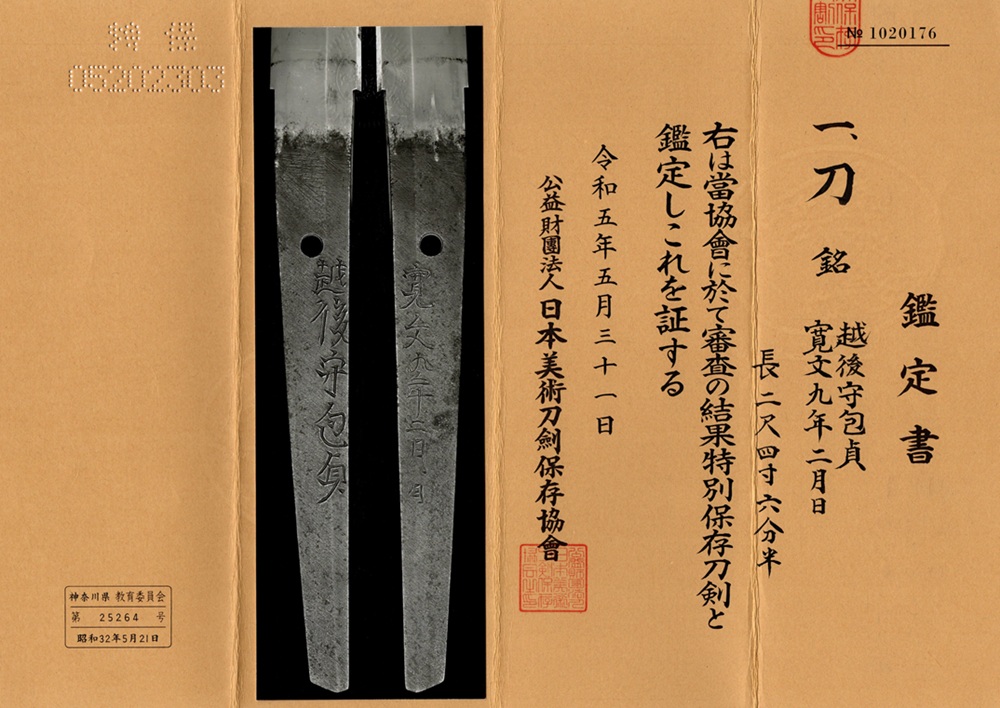 № 1020176
鑑定書
一、刀 銘
越後守包貞
寛文九年二月日
長二尺四寸六分半
右は當協會に於て審査の結果特別保存刀剣と
鑑定しこれを証する
令和五年五月三十一日
公益財團法人 日本美術刀劍保存協會
越後守包貞
寛文九年二月日
特保
05202303
神奈川県 教育委員会
第 25264 号
昭和32年5月21日